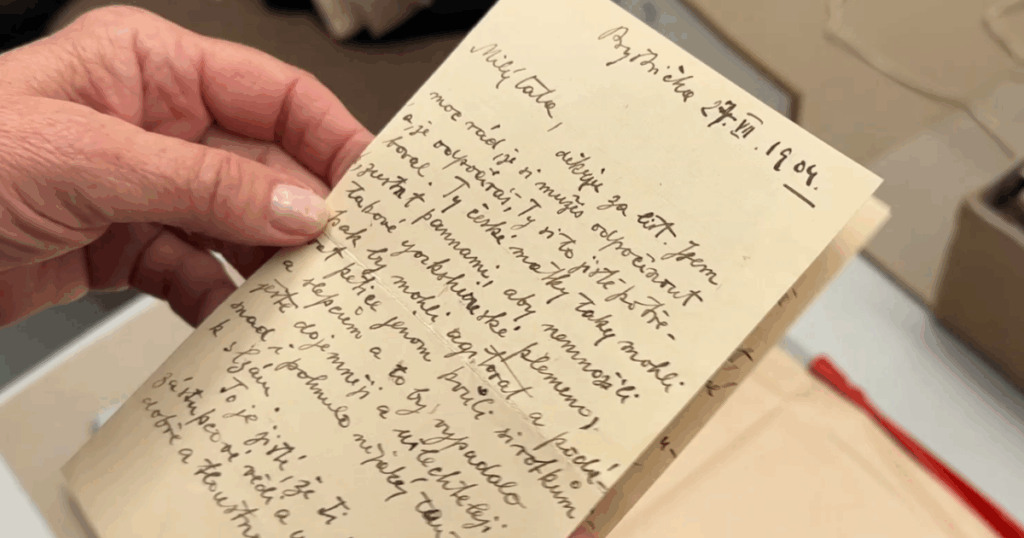 Bystrička 27. VI. 1904.
Milý tato,
děkuji za list. Jsem
moc rád že si můžeš odpočinout
a že odpočíváš, Ty si to jistě potře-
boval. Ty české matky taky mohli
zůstat pannami, aby nemnožili
takové yorkshirské plemeno,
jak by mohli agitovat a pochá-
zet pětice jenom kvůli sirotkům
a slepcům a to by vypadalo
ještě dojemněji a ušlechtileji
snad i pohnulo nějaký
k slzám. To je jistě, že Ti
zástupcové
dobře a